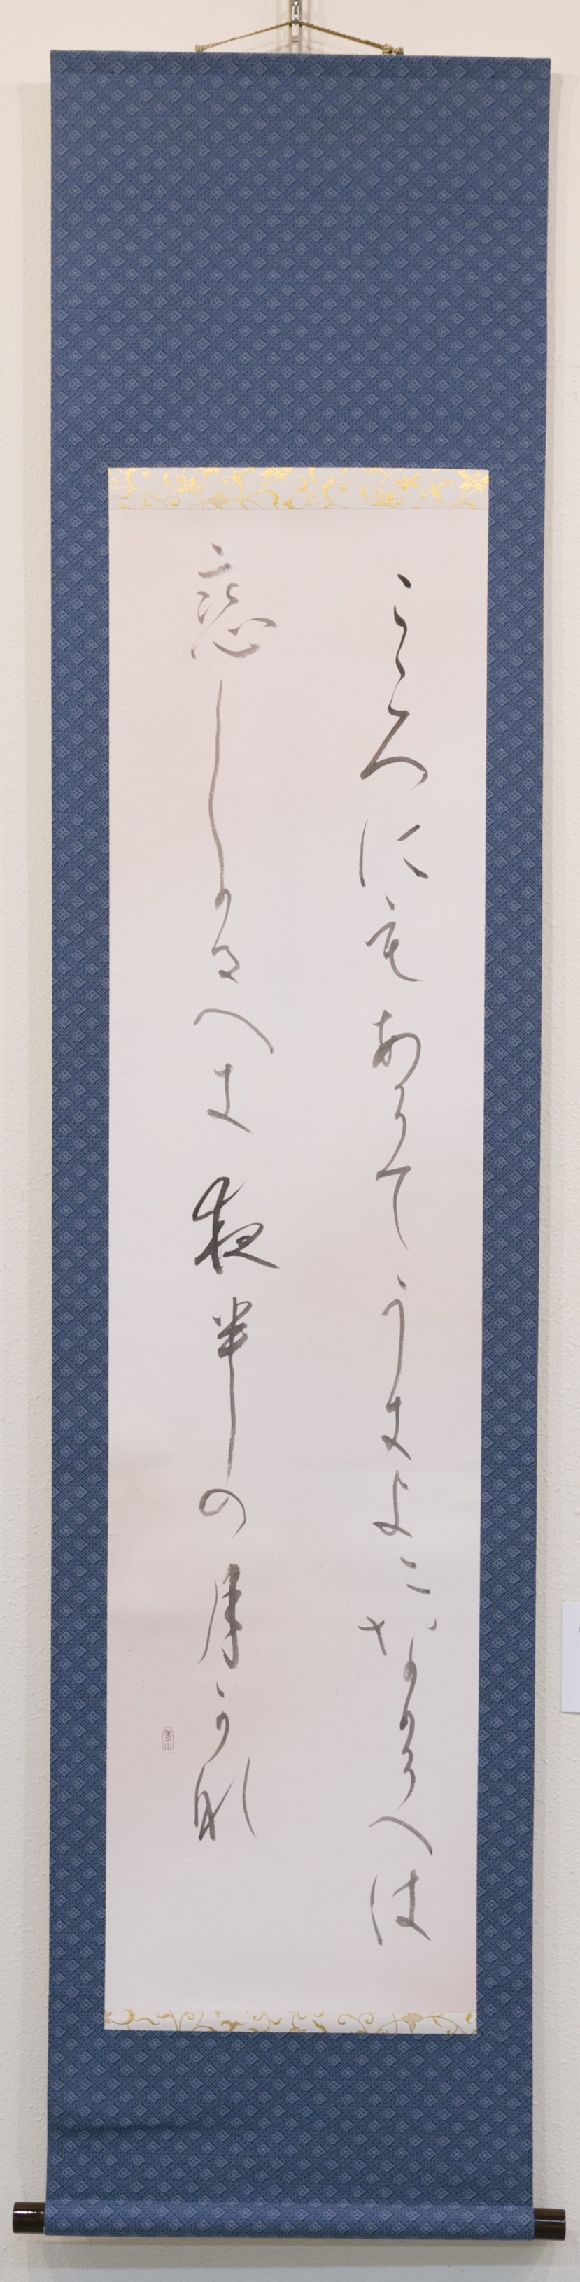 こゝろにもあらてうきよになからへは
恋しかるへき夜半の月かな